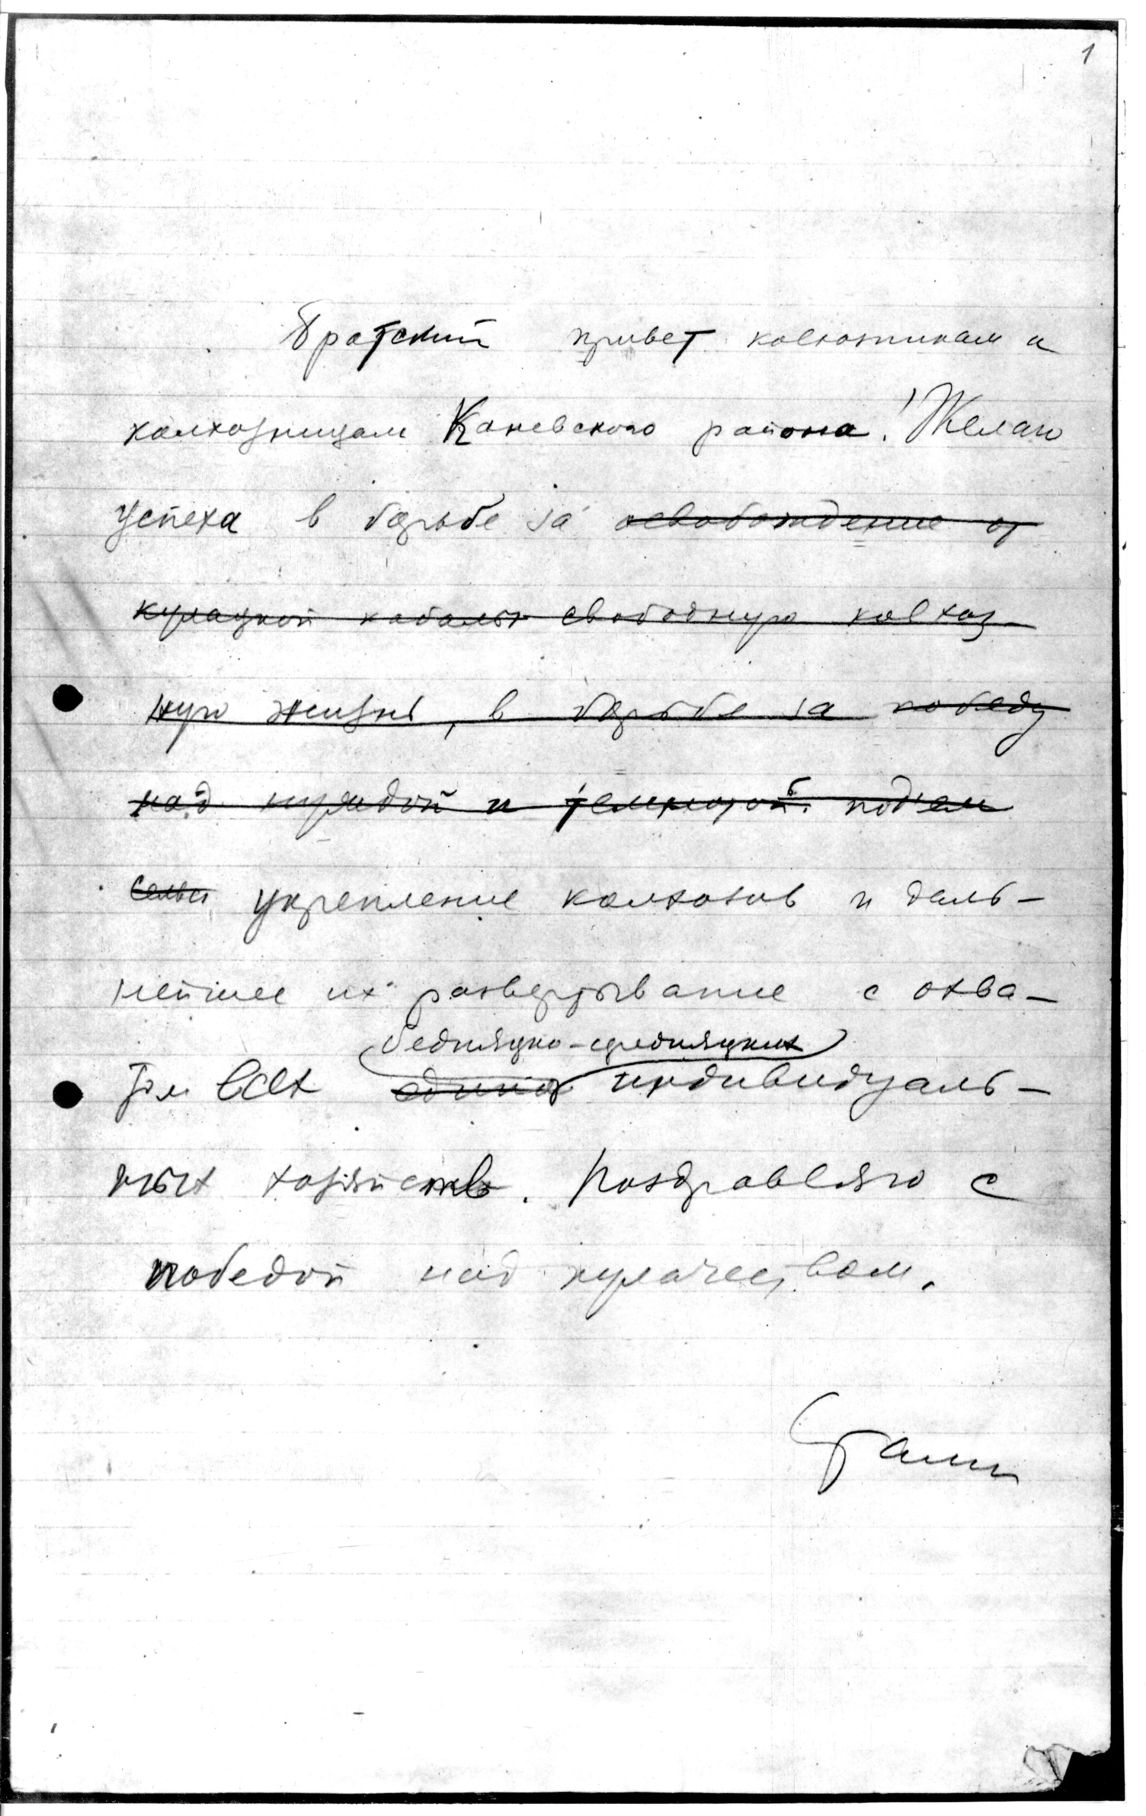 1
Братский привет колхозникам и
колхозницам Каневского района! Желаю
успеха в борьбе за освобождение от
кулацкой кабалы свободную колхоз-
ную жизнь, в борьбе за победу
над нуждой и темнотой. под'ем
сельск укрепление колхозов и даль-
нейшее их развертывание с охва-
бедняцко-середняцких
том всех единол индивидуаль-
ных хозяйств. Поздравляю с
победой над кулачеством.
Сталин